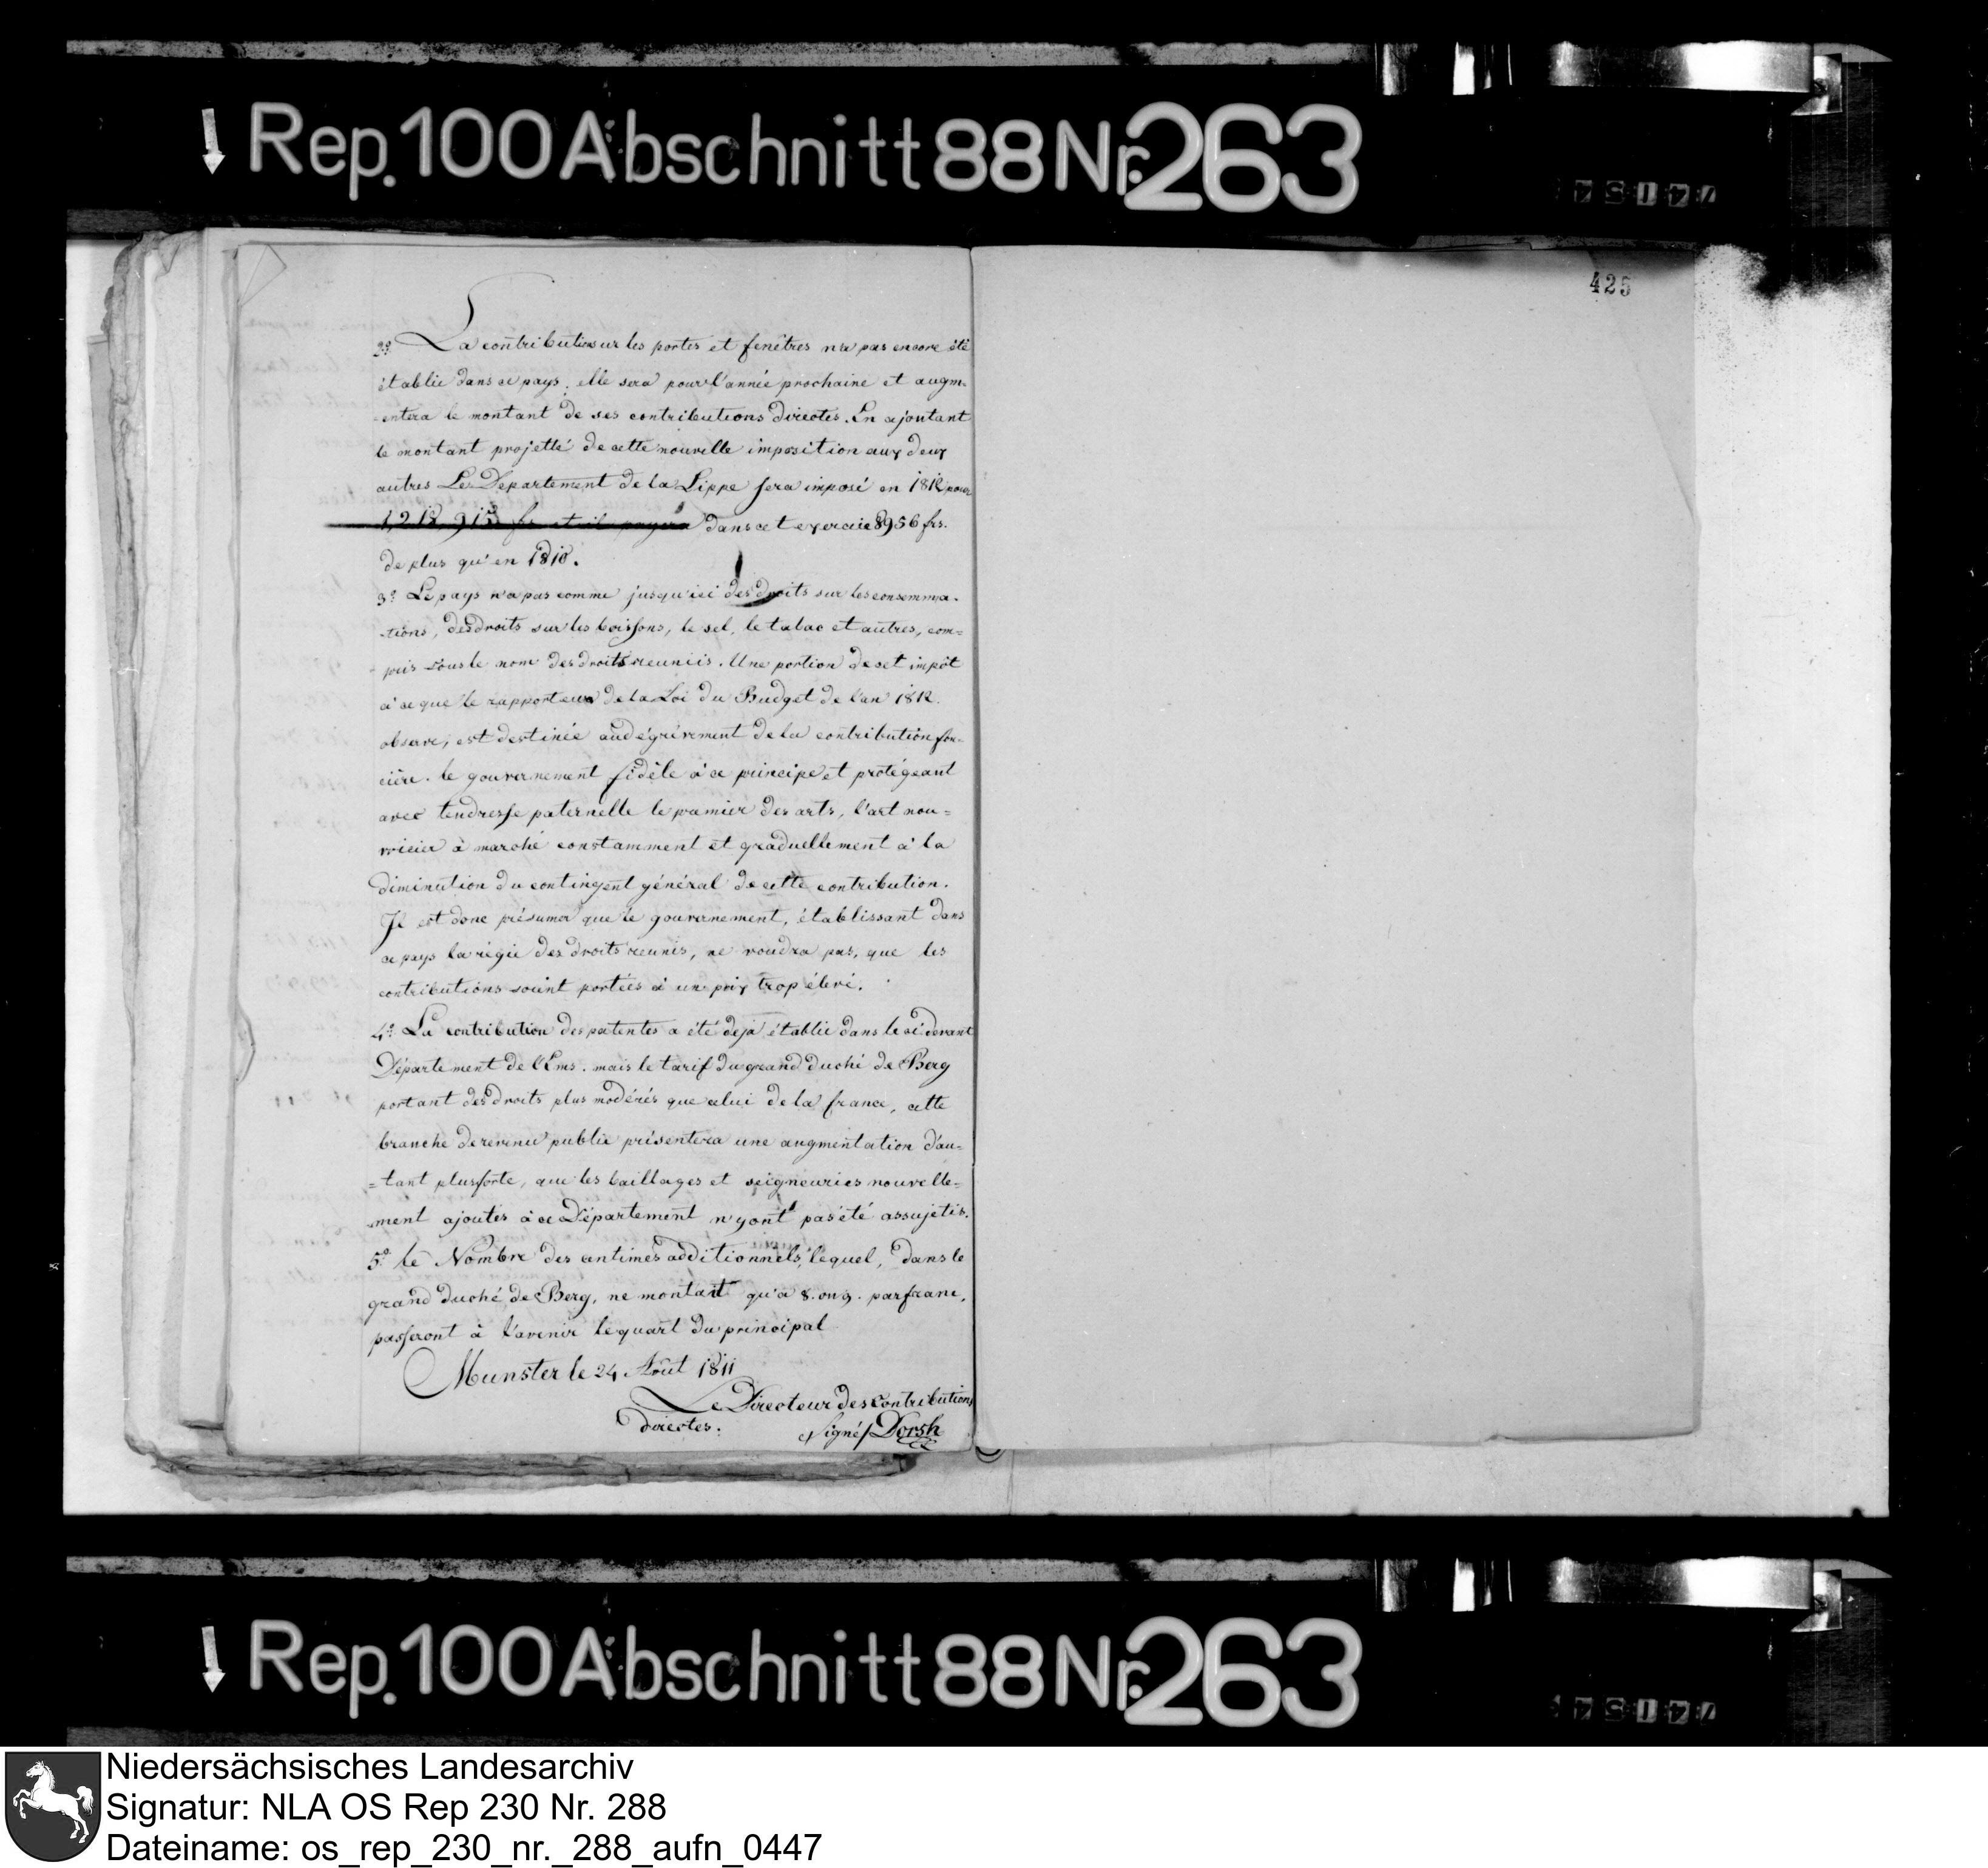 Rep. 100 Abschnitt 88 Nr. 263
425
2º La contribution sur les portes et fenêtres n'a pas encore été
établie dans ce pays. elle sera pour l'année prochaine et augm-
-entera le montant de ses contributions directes. En ajoutant
le montant projetté de cette nouvelle imposition aux deux
autres Le Departement de la Lippe sera imposé en 1812 pour
1,218,915 fr et il payera dans cet exercice 8956 frs.
de plus qu'en 1810.
3º Le pays n'a pas comme jusqu'ici des droits sur les consomma-
-tions, des droits sur les boissons, le sel, le tabac et autres, com=
-pris sous le nom des droits reunis. Une portion de cet impôt
à ce que le rapporteur de la Loi du Budget de l'an 1812.
observe, est destinée au dégrévement de la contribution fon-
cière. le gouvernement fidèle à ce principe et protégeant
avec tendresse paternelle le premier des arts, l'art nou=
rricier à marché constamment et graduellement à la
diminution du contingent général de cette contribution.
Il est donc présumer que le gouvernement, établissant dans
ce pays la régie des droits reunis, ne voudra pas, que les
contributions soint portées à un prix trop élevé.
4º La contribution des patentes a été deja établie dans le ci devant
Département de l'Ems. mais le tarif du grand duché de Berg
portant des droits plus modérés que celui de la france, cette
branche de revenu public présentera une augmentation d'au=
=tant plus forte, que les baillages et seigneuries nouvelle=
-ment ajoutés à ce Département n'y ont pas été assujetis.
5º le Nombre des centimes additionnels, lequel, dans le
grand duché de Berg, ne montait qu'à 8. ou 9. par franc,
passeront à l'avenir le quart du principal
Munster le 24 Août 1811
Le Directeur des Contributions
directes.
signé/ Dorsh
Rep. 100 Abschnitt 88 Nr. 263
Niedersächsisches Landesarchiv
Signatur: NLA OS Rep 230 Nr. 288
Dateiname: os_rep_230_nr._288_aufn_0447